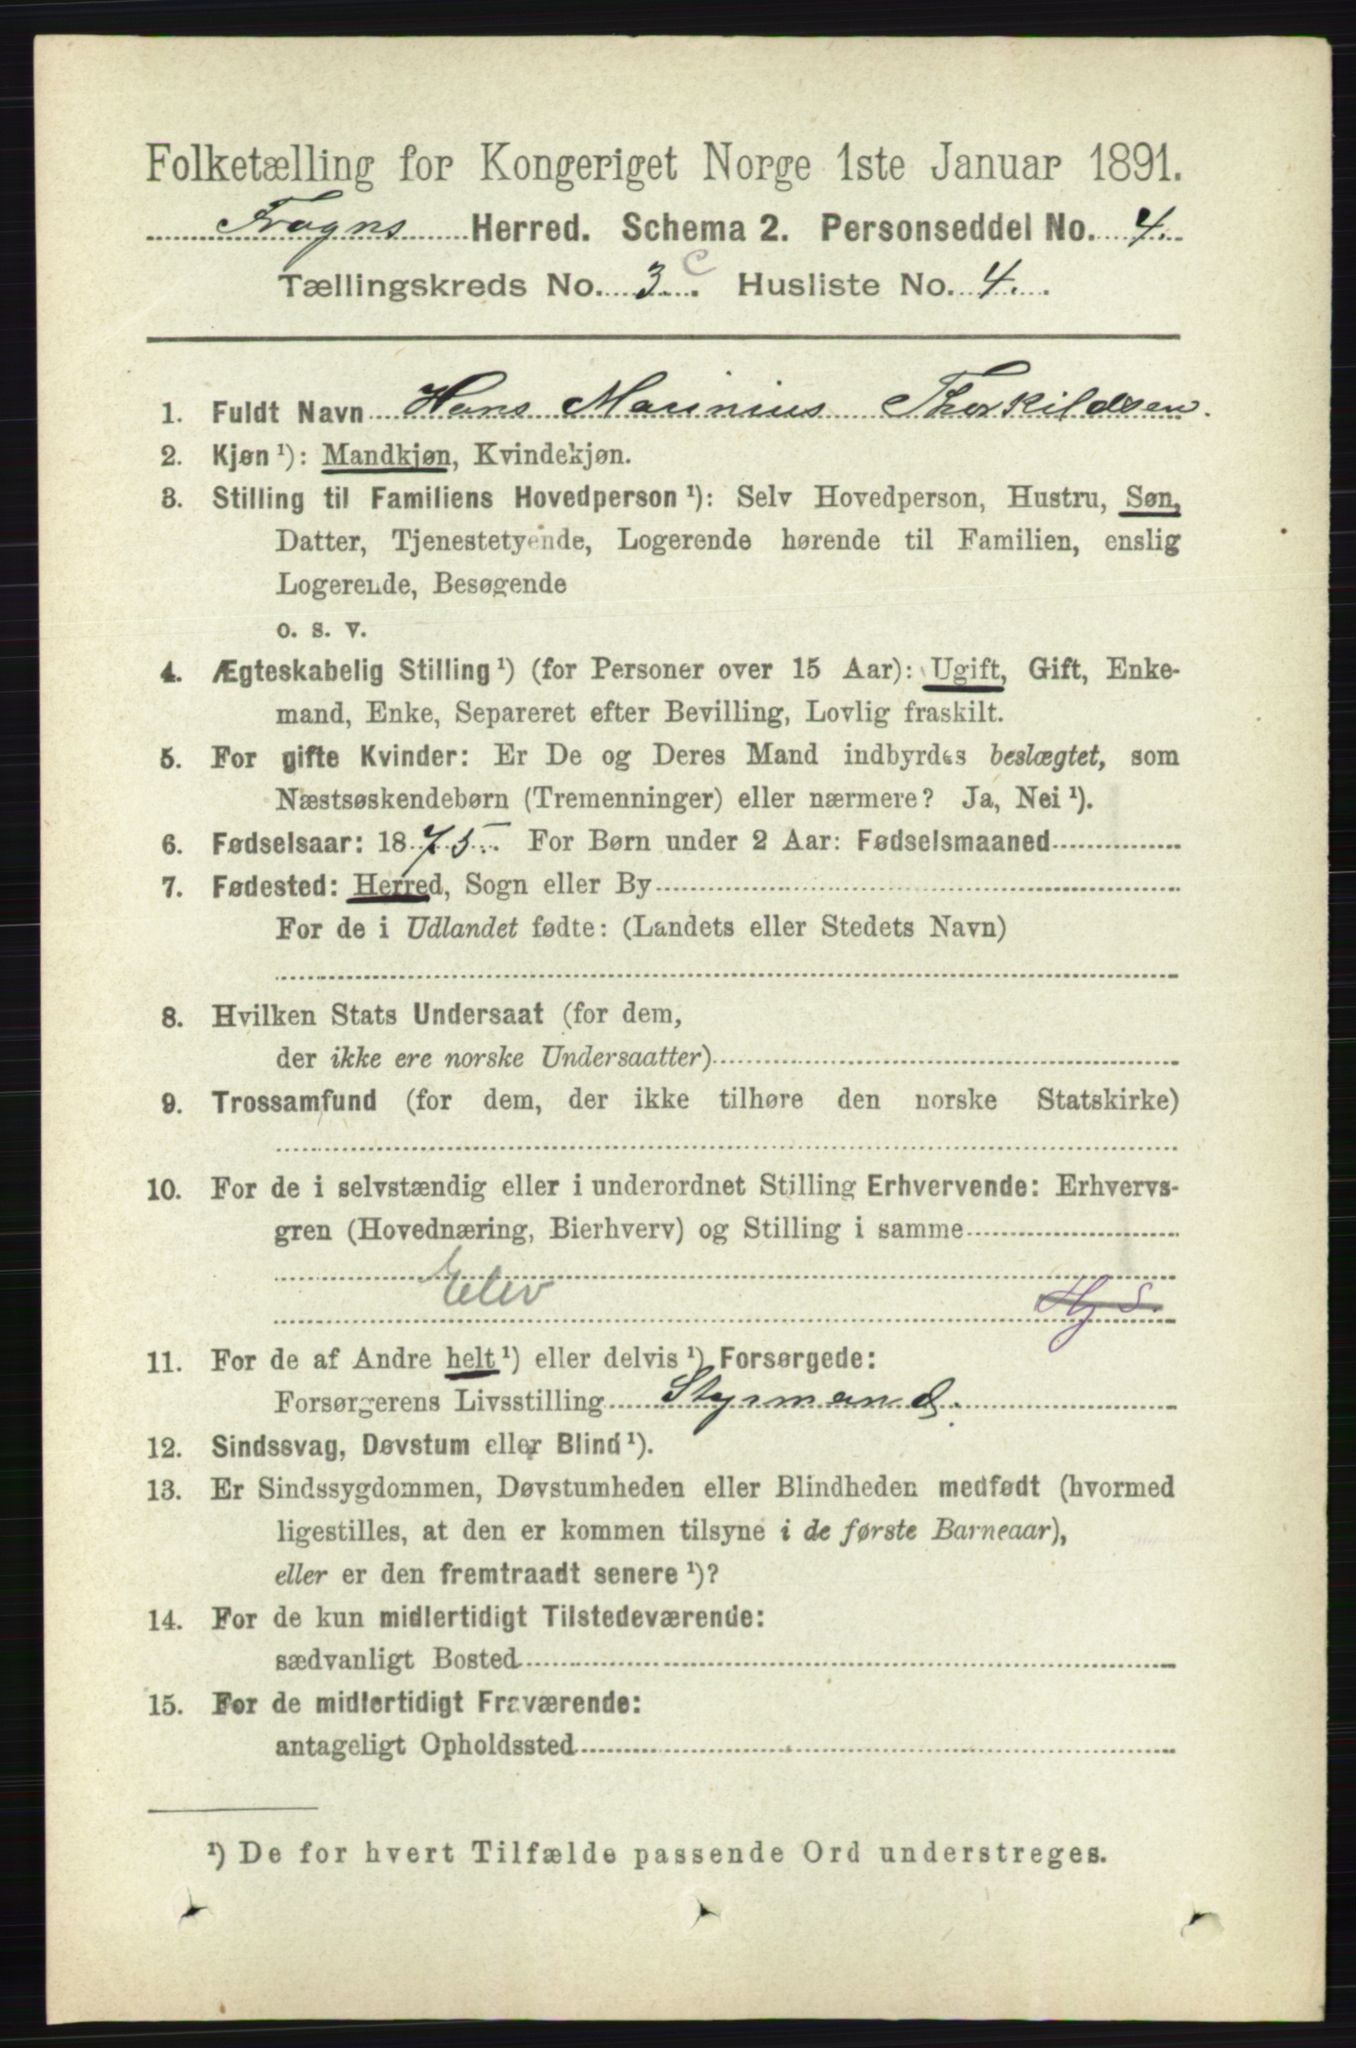 Folketælling for Kongeriget Norge 1ste Januar 1891.
Frogns Herred. Schema 2. Personseddel No. 4.
Tællingskreds No. 3 c. Husliste No. 4.
1. Fuldt Navn Hans Marinius Thorkildsen.
2. Kjøn ¹): Mandkjøn, Kvindekjøn.
3. Stilling til Familiens Hovedperson ¹): Selv Hovedperson, Hustru, Søn,
Datter, Tjenestetyende, Logerende hørende til Familien, enslig
Logerende, Besøgende
o. s. v.
4. Ægteskabelig Stilling ¹) (for Personer over 15 Aar): Ugift, Gift, Enke-
mand, Enke, Separeret efter Bevilling, Lovlig fraskilt.
5. For gifte Kvinder: Er De og Deres Mand indbyrdes beslægtet, som
Næstsøskendebørn (Tremenninger) eller nærmere? Ja, Nei ¹).
6. Fødselsaar: 1875. For Børn under 2 Aar: Fødselsmaaned
7. Fødested: Herred, Sogn eller By
For de i Udlandet fødte: (Landets eller Stedets Navn)
8. Hvilken Stats Undersaat (for dem,
der ikke ere norske Undersaatter)
9. Trossamfund (for dem, der ikke tilhøre den norske Statskirke)
10. For de i selvstændig eller i underordnet Stilling Erhvervende: Erhvervs-
gren (Hovednæring, Bierhverv) og Stilling i samme
Elev Hj S.
11. For de af Andre helt ¹) eller delvis ¹) Forsørgede:
Forsørgerens Livsstilling Styrmand.
12. Sindssvag, Døvstum eller Blind ¹).
13. Er Sindssygdommen, Døvstumheden eller Blindheden medfødt (hvormed
ligestilles, at den er kommen tilsyne i de første Barneaar),
eller er den fremtraadt senere ¹)?
14. For de kun midlertidigt Tilstedeværende:
sædvanligt Bosted
15. For de midlertidigt Fraværende:
antageligt Opholdssted
¹) De for hvert Tilfælde passende Ord understreges.